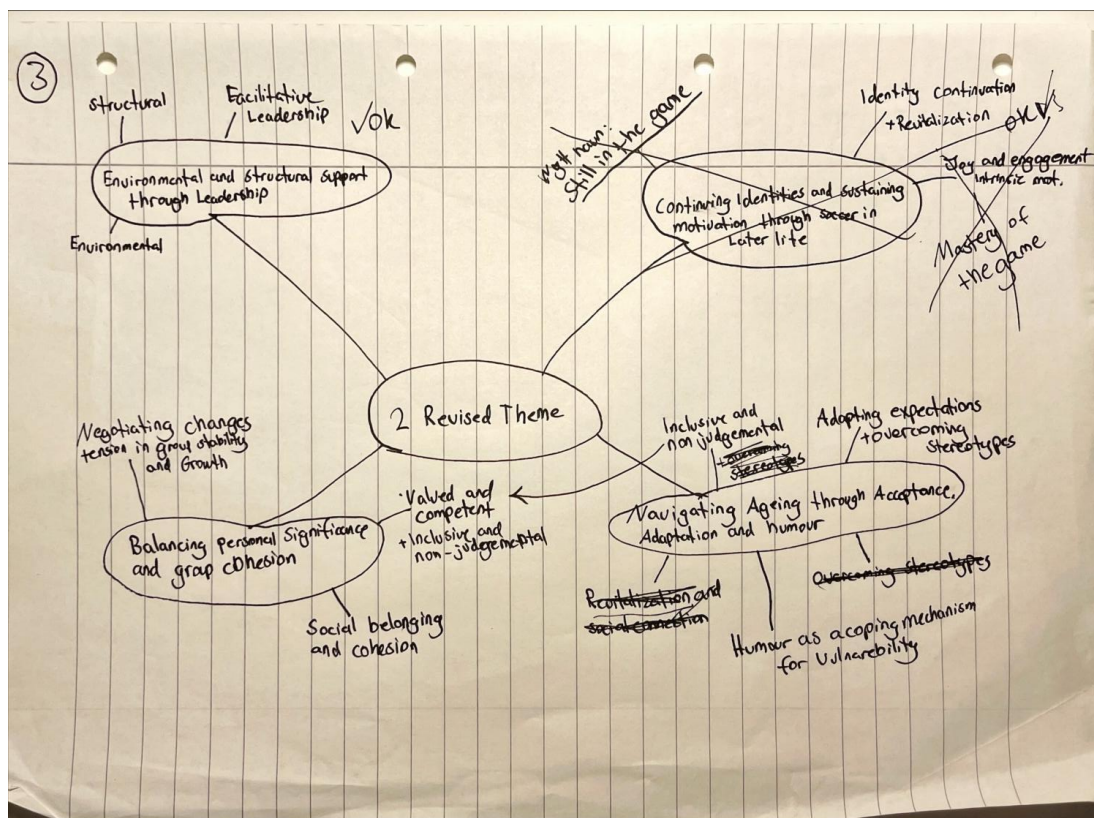 3
Structural
Facilitative
Leadership
✓OK
Environmental and structural support
through Leadership
Environmental
Still in the game
Identity continuation
+ Revitalization
OK✓
Joy and engagement
Intrinsic mot.
Continuing Identities and sustaining
motivation through soccer in
Later life
Mastery of
the game
2 Revised Theme
Negotiating changes
tension in group stability
and Growth
Balancing personal Significance
and group cohesion
Valued and
competent
+ Inclusive and
non-judgemental
Social belonging
and cohesion
Inclusive and
non judgemental
+ overcoming
stereotypes
Adapting expectations
+ overcoming
stereotypes
Navigating Ageing through Acceptance,
Adaptation and humour
Revitalization and
social connection
Overcoming stereotypes
Humour as a coping mechanism
for Vulnarebility